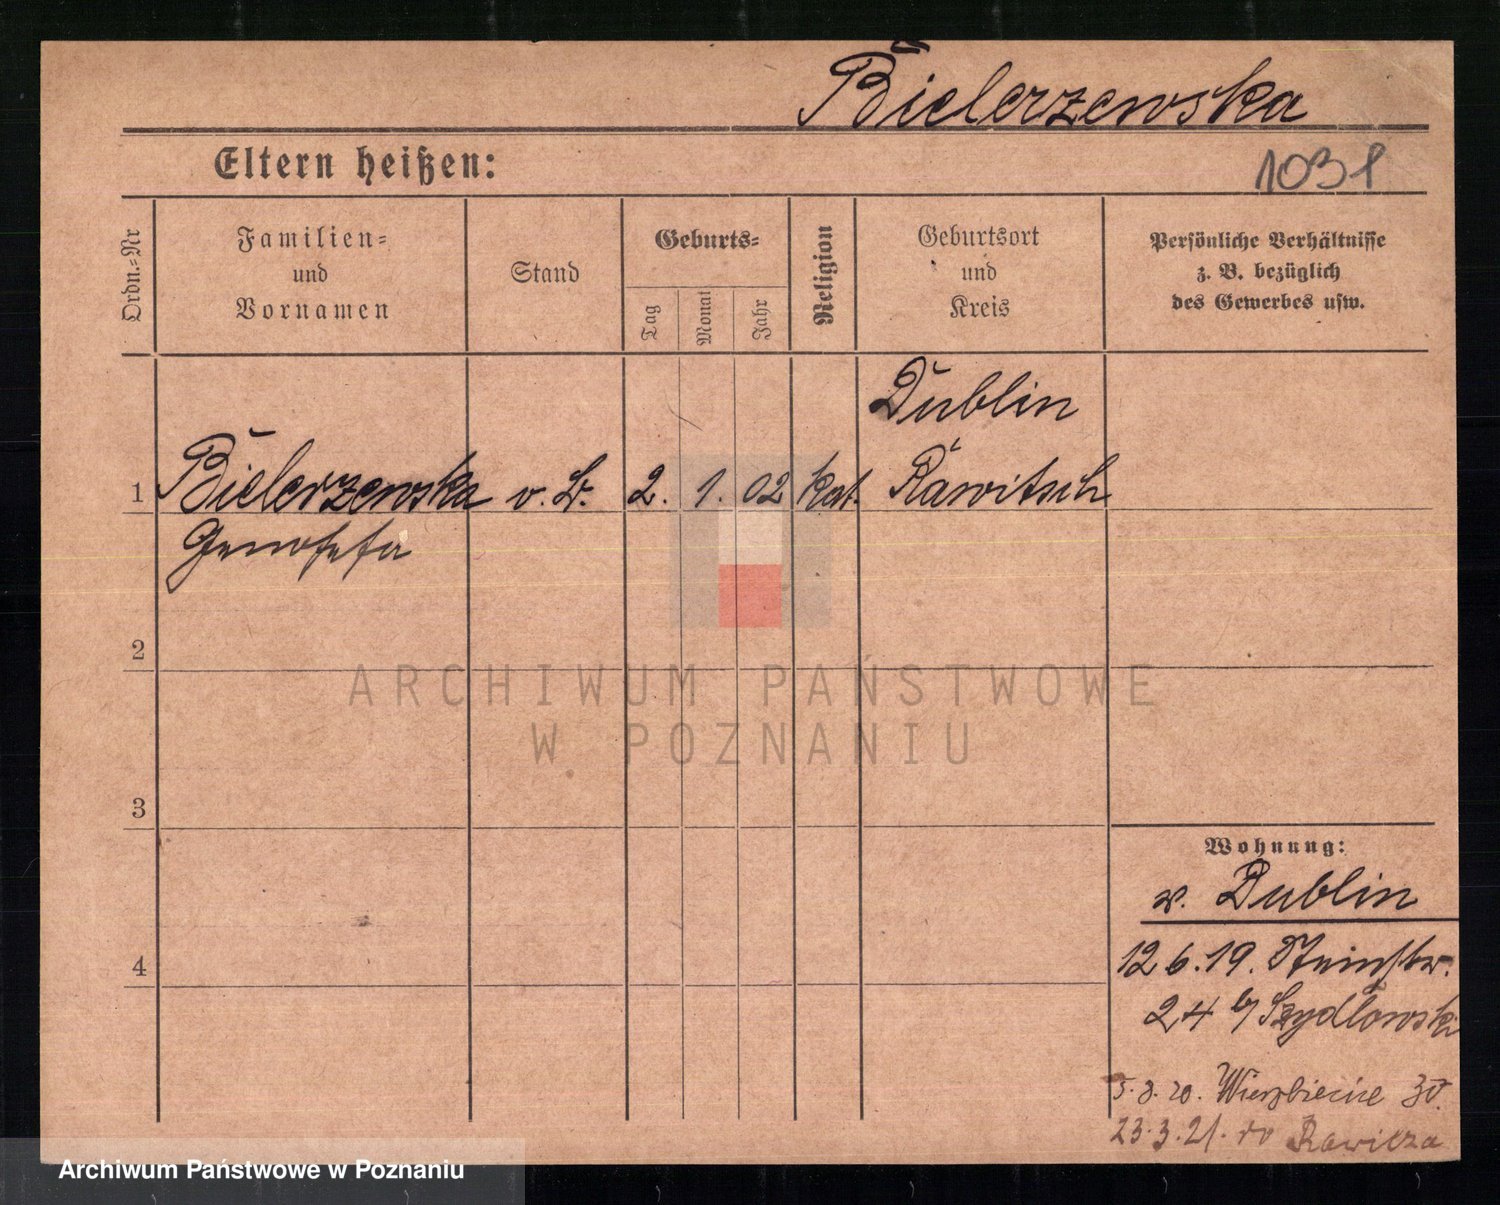 Bielerzewska
Eltern heißen:
1031
Ordn.=Nr
Familien=
und
Vornamen
Stand
Geburts=
Tag
Monat
Jahr
Religion
Geburtsort
und
Kreis
Persönliche Verhältnisse
z. B. bezüglich
des Gewerbes usw.
Dublin
1 Bielerzewska 2. 1. 02 kat. Rawitsch
Genofefa
2
3
4
Wohnung:
v. Dublin
12 6. 19. Steinstr.
24 b/ Szydlowski
5. 3. 20. Wierzbiecice 30.
23. 3. 21. do Rawicza
ARCHIWUM PAŃSTWOWE
W POZNANIU
Archiwum Państwowe w Poznaniu